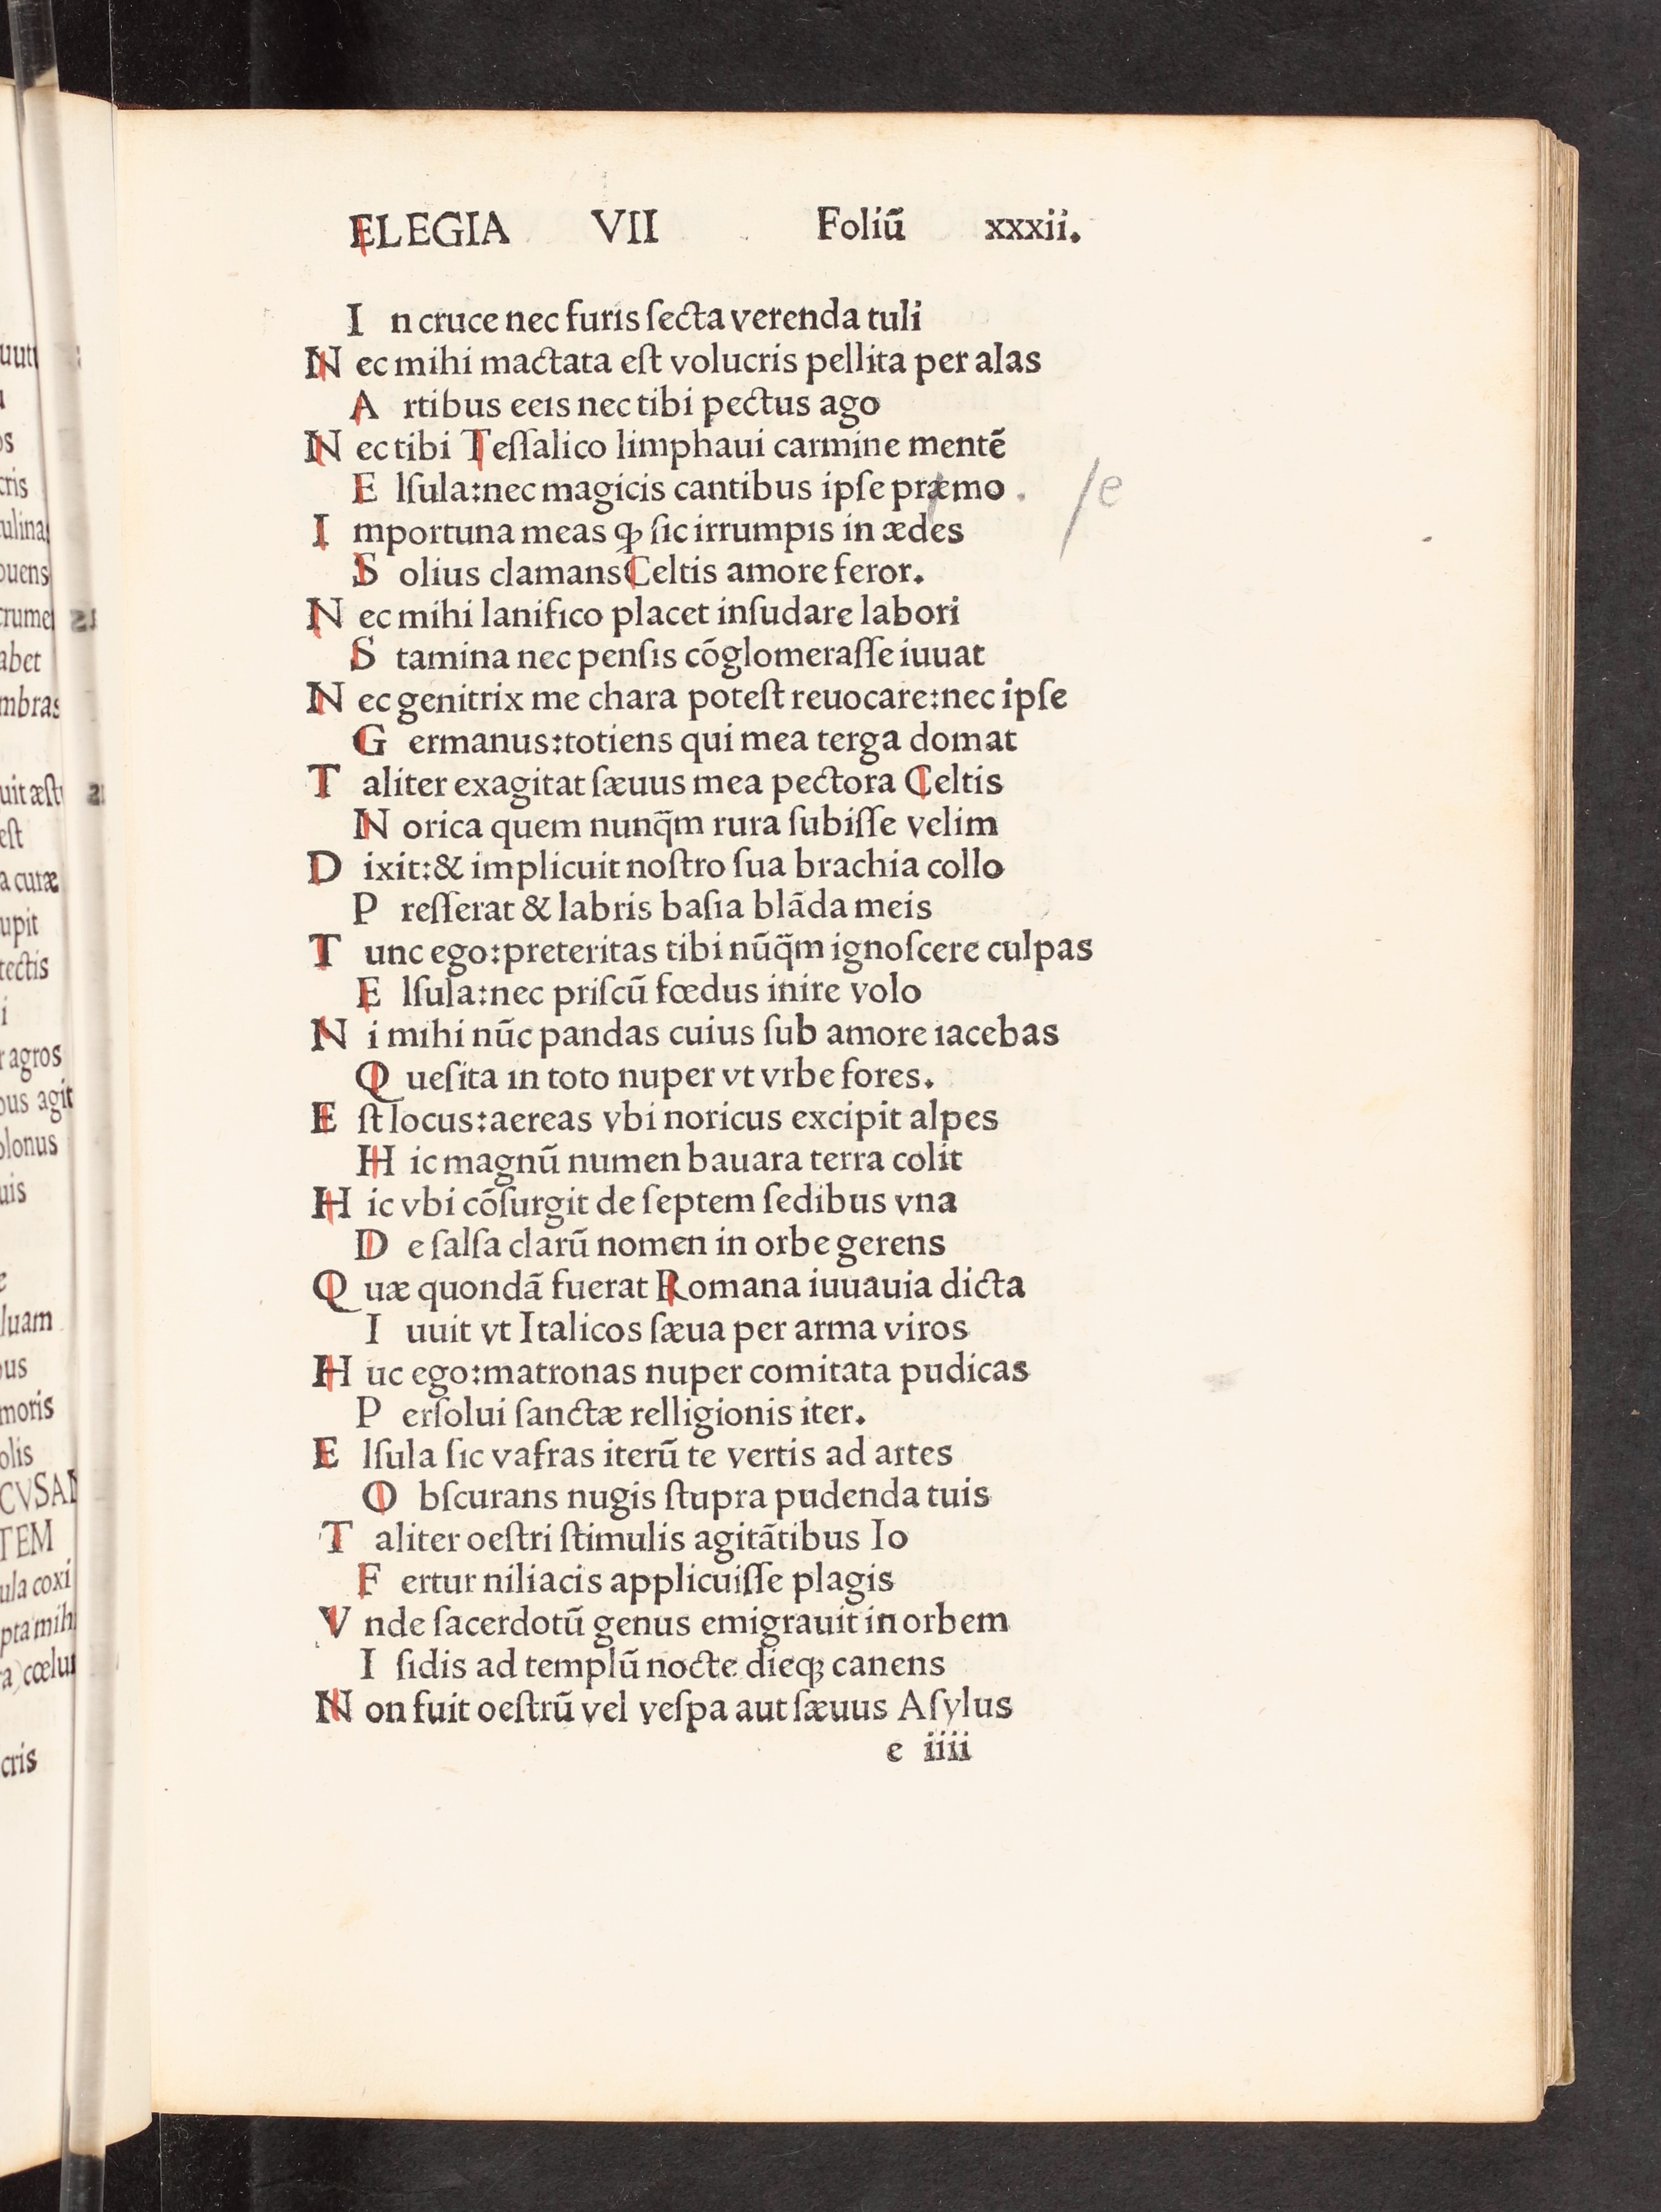 ELEGIA VII Foliū xxxii.
I n cruce nec furis ſecta verenda tuli
N ec mihi mactata eſt volucris pellita per alas
A rtibus eeis nec tibi pectus ago
N ec tibi Teſſalico limphaui carmine mentē
E lſula:nec magicis cantibus ipſe præmo . /e
I mportuna meas ꝙ ſic irrumpis in ædes
S olius clamans Celtis amore feror.
N ec mihi lanifico placet inſudare labori
S tamina nec penſis cōglomeraſſe iuuat
N ec genitrix me chara poteſt reuocare:nec ipſe
G ermanus:totiens qui mea terga domat
T aliter exagitat ſæuus mea pectora Celtis
N orica quem nunq̄m rura ſubiſſe velim
D ixit:& implicuit noſtro ſua brachia collo
P reſſerat & labris baſia blāda meis
T unc ego:preteritas tibi nūq̄m ignoſcere culpas
E lſula:nec priſcū fœdus inire volo
N i mihi nūc pandas cuius ſub amore iacebas
Q ueſita in toto nuper vt vrbe fores.
E ſt locus:aereas vbi noricus excipit alpes
H ic magnū numen bauara terra colit
H ic vbi cōſurgit de ſeptem ſedibus vna
D e ſalſa clarū nomen in orbe gerens
Q uæ quondā fuerat Romana iuuauia dicta
I uuit vt Italicos ſæua per arma viros
H uc ego:matronas nuper comitata pudicas
P erſolui ſanctæ relligionis iter.
E lſula ſic vafras iterū te vertis ad artes
O bſcurans nugis ſtupra pudenda tuis
T aliter oeſtri ſtimulis agitātibus Io
F ertur niliacis applicuiſſe plagis
V nde ſacerdotū genus emigrauit in orbem
I ſidis ad templū nocte dieqꝫ canens
N on fuit oeſtrū vel veſpa aut ſæuus Aſylus
e iiii